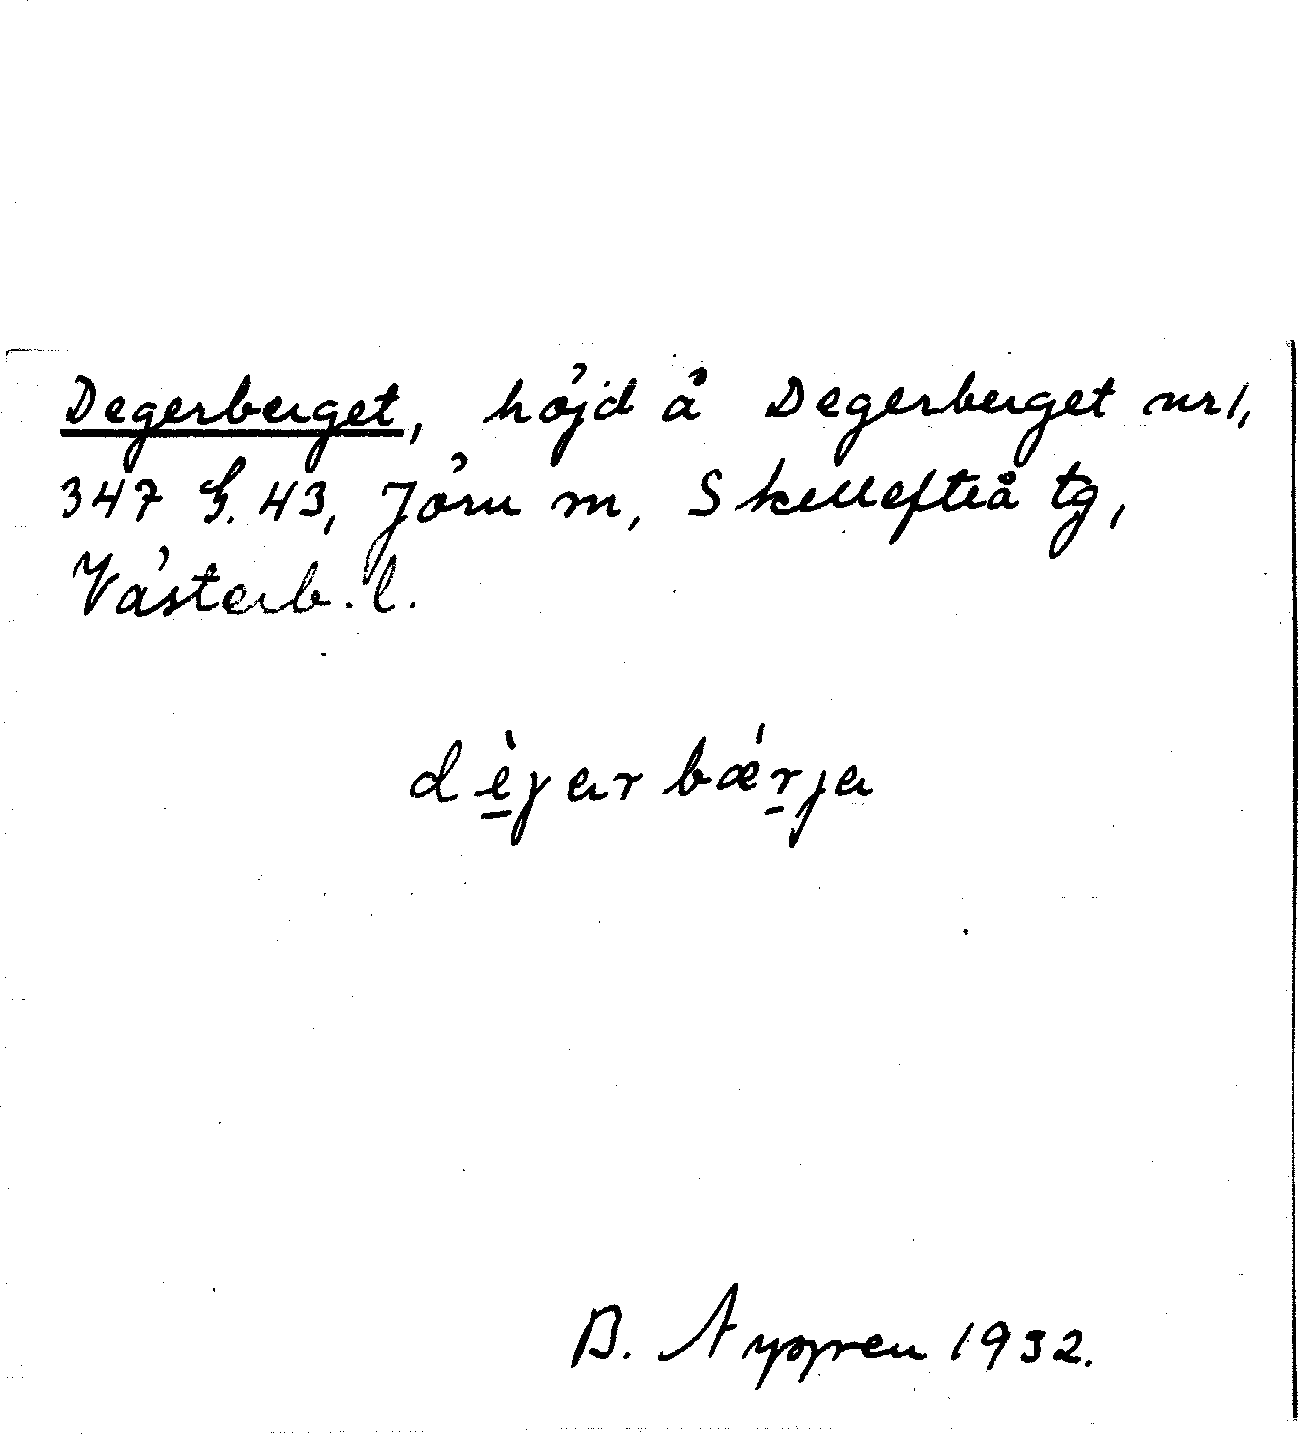 Degerberget, höjd å Degerberget nr 1,
347 G. 43, Jörn m, Skellefteå tg,
Västerb. l.
dèjarbǽrja
B. 1932.